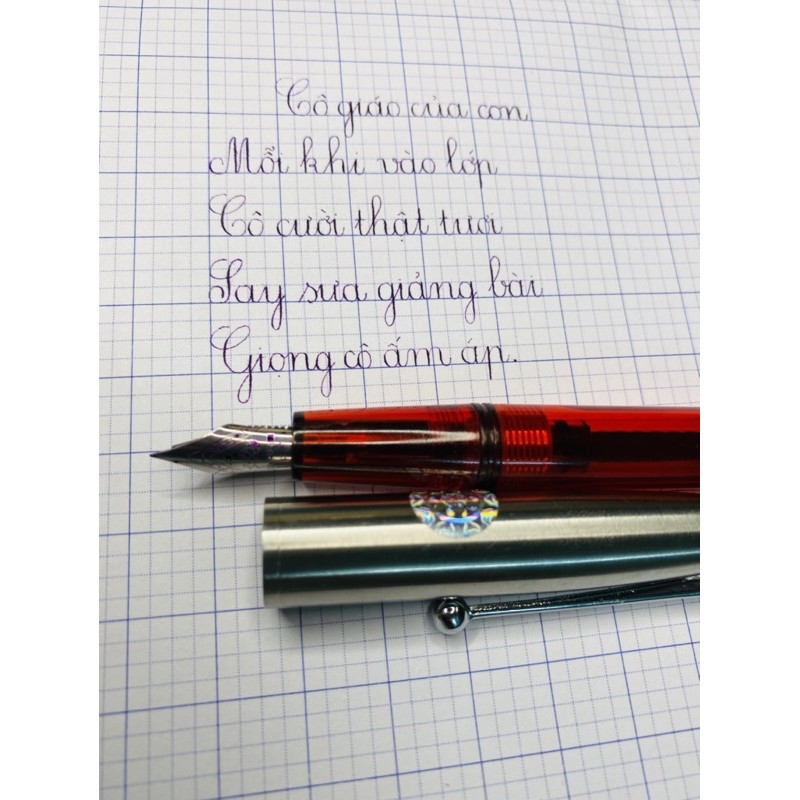 Cô giáo của con
Mỗi khi vào lớp
Cô cười thật tươi
Say sưa giảng bài
Giọng cô ấm áp.